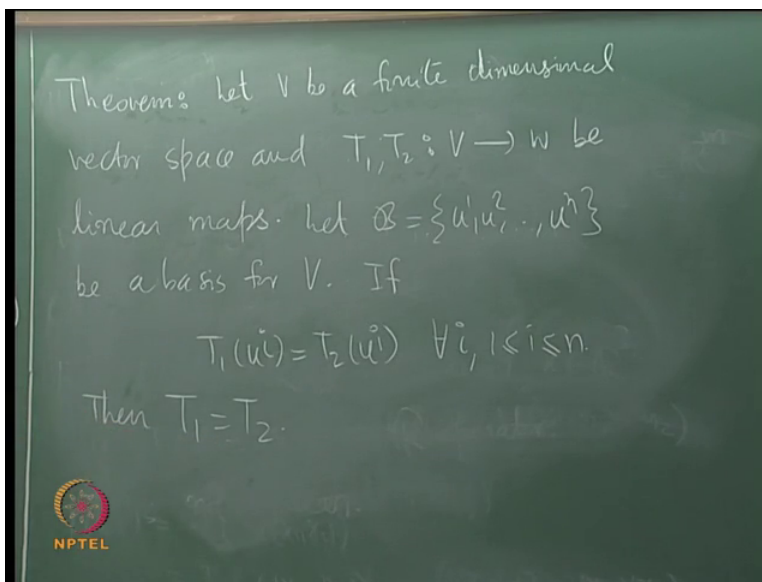 Theorem: Let V be a finite dimensional
vector space and T₁, T₂ : V → W be
linear maps. Let B = {u¹, u², .., uⁿ}
be a basis for V. If
T₁(uⁱ) = T₂(uⁱ) ∀i, 1 ≤ i ≤ n.
Then T₁ = T₂.
NPTEL